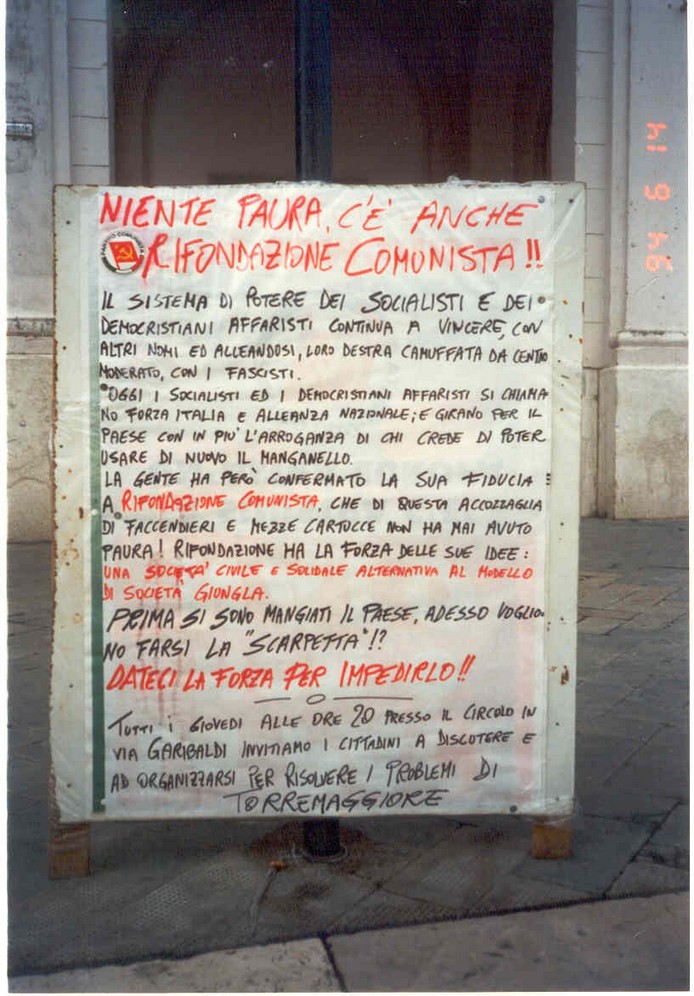 NIENTE PAURA, C'E' ANCHE
RIFONDAZIONE COMUNISTA!!
IL SISTEMA DI POTERE DEI SOCIALISTI E DEI
DEMOCRISTIANI AFFARISTI CONTINUA A VINCERE, CON
ALTRI NOMI ED ALLEANDOSI, LORO DESTRA CAMUFFATA DA CENTRO
MODERATO, CON I FASCISTI.
OGGI I SOCIALISTI ED I DEMOCRISTIANI AFFARISTI SI CHIAMA
NO FORZA ITALIA E ALLEANZA NAZIONALE; E GIRANO PER IL
PAESE CON IN PIU' L'ARROGANZA DI CHI CREDE DI POTER
USARE DI NUOVO IL MANGANELLO.
LA GENTE HA PERÒ CONFERMATO LA SUA FIDUCIA
A RIFONDAZIONE COMUNISTA, CHE DI QUESTA ACCOZZAGLIA
DI FACCENDIERI E MEZZE CARTUCCE NON HA MAI AVUTO
PAURA! RIFONDAZIONE HA LA FORZA DELLE SUE IDEE:
UNA SOCIETA' CIVILE E SOLIDALE ALTERNATIVA AL MODELLO
DI SOCIETÀ GIUNGLA.
PRIMA SI SONO MANGIATI IL PAESE, ADESSO VOGLIO-
NO FARSI LA "SCARPETTA"!?
DATECI LA FORZA PER IMPEDIRLO!!
TUTTI I GIOVEDI ALLE ORE 20 PRESSO IL CIRCOLO IN
VIA GARIBALDI INVITIAMO I CITTADINI A DISCUTERE E
AD ORGANIZZARSI PER RISOLVERE I PROBLEMI DI
TORREMAGGIORE
14 9 '94